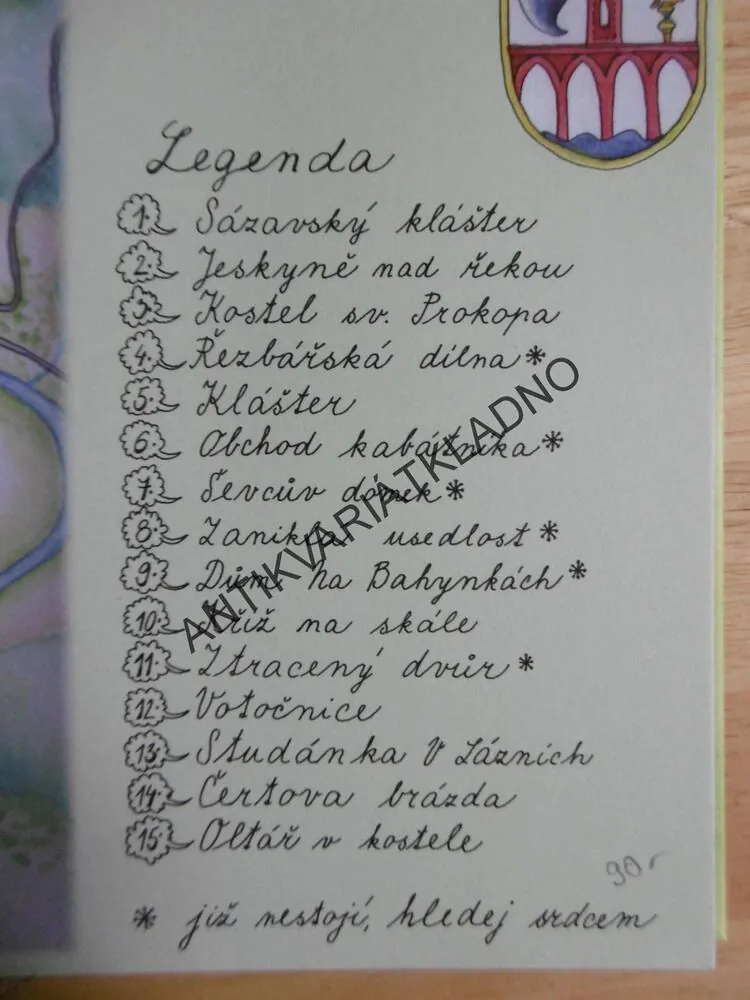 Legenda
1. Sázavský klášter
2. Jeskyně nad řekou
3. Kostel sv. Prokopa
4. Řezbářská dílna *
5. Klášter
6. Obchod kabátníka *
7. Ševcův domek *
8. Zaniklá usedlost *
9. Dům Na Bahynkách *
10. Kříž na skále
11. Ztracený dvůr *
12. Votočnice
13. Studánka V Lázních
14. Čertova brázda
15. Oltář v kostele
90,-
* již nestojí, hledej srdcem
ANTIKVARIÁTKLADNO